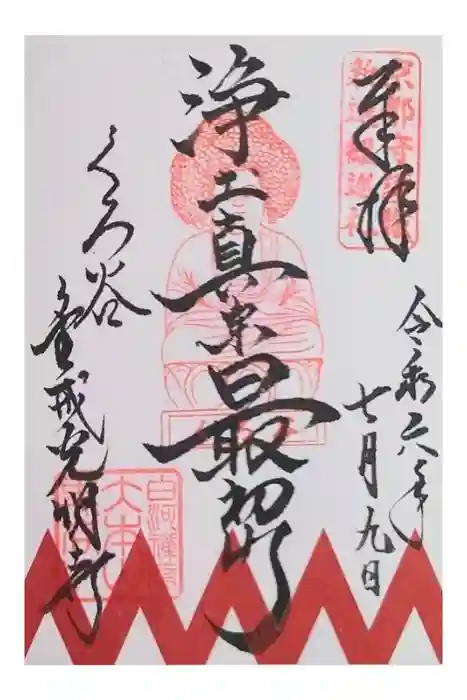 奉拝
令和六年
七月九日
浄土真宗最初門
くろ谷
金戒光明寺
白河禅房
大本山